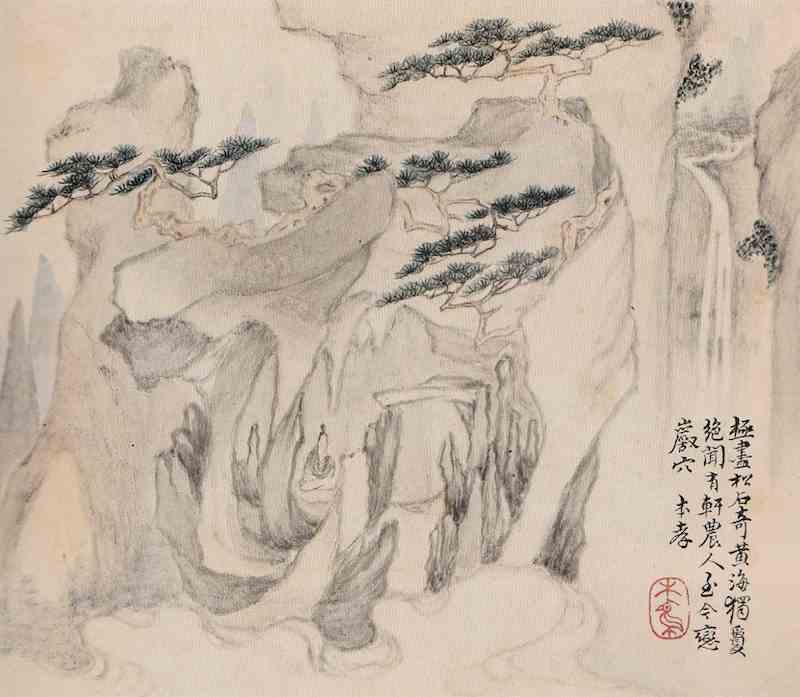 極盡松石奇黃海獨夐
絕聞有軒農人至今戀
巖穴 本孝